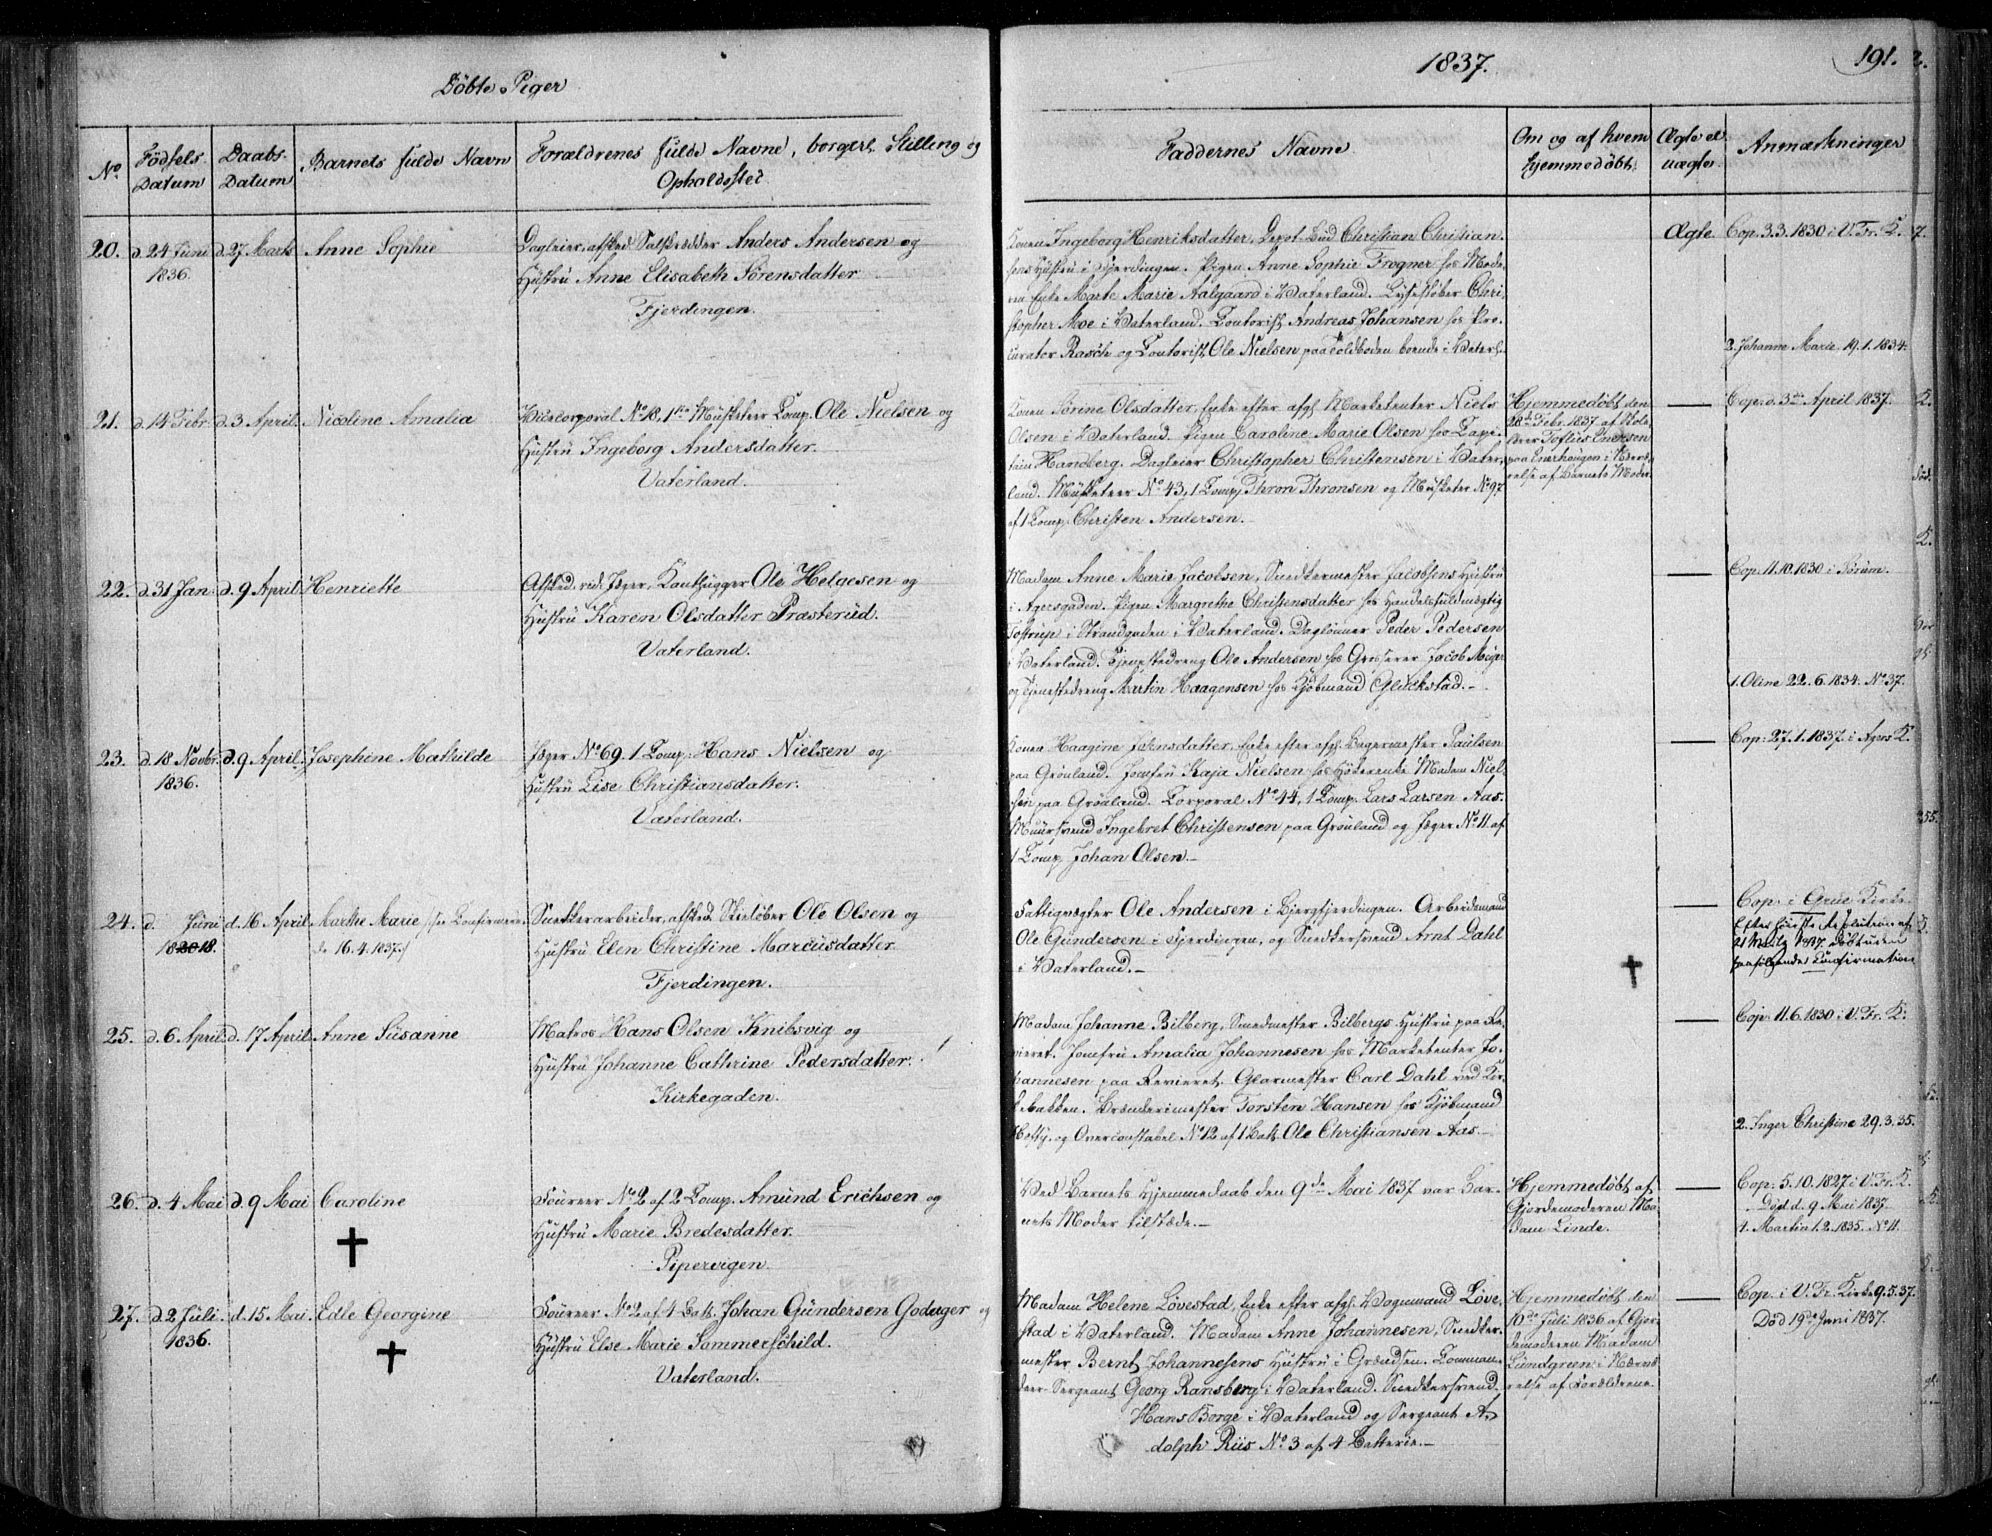 Döbte Piger
1837.
191.
No
Födsels Datum
Daabs-Datum
Barnets fulde Navn
Forældrenes fulde Navne, borgerl. Stilling og
Opholdssted
Faddernes Navne
Om og af hvem
hjemmedöbt.
Ægte el.
uægte.
Anmærkninger
20. d. 24 Juni d. 27 Marts Anne Sophie
1836.
Dagleier, afsked. Andersen og
Hustru Anne Elisabeth Sörensdatter
Fjerdingen.
Konen Ingeborg Henriksdatter, Depot Bud Christian Christian-
sens Hustru i Fjerdingen. Pigen Anne Sophie Frogner hos Mode-
ren Enke Marte Marie Aalgaard i Vaterland. Lysestöber Chri-
stopher Moe i Vaterland. Contorist Andreas Johansen hos Pro-
curator Rasch og Contorist Ole Nielsen paa Toldboden boende i Vaterl.
Ægte
Cop. 3.3.1830 i V. Fr. K.
2. Johanne Marie 19.1.1834.
21. d. 14 Febr. d. 3 April. Nicoline Amalia
Vicecorporal No 18, 1ste Musketeer Comp. Ole Nielsen og
Hustru Ingeborg Andersdatter.
Vaterland.
Konen Sörine Olsdatter, Enke efter afgl. Marketenter Niels
Olsen i Vaterland. Pigen Caroline Marie Olsen hos Capi-
tain Handberg. Dagleier Christopher Christensen i Vater-
land. Musketeer No 43, 1 Comp. Thron Thronsen og Musketeer No 97
af 1 Comp. Christen Andersen.
Hjemmedöbt den
28de Febr. 1837 af Skole-
paa Enerhaugen i Nærvæ-
relse af Barnets Moder.
Cop. d. 3die April 1837.
22. d. 31 Jan. d. 9 April Henriette
Afsked. rid. Jæger, Ole Helgesen og
Hustru Karen Olsdatter Præsterud.
Vaterland.
Madam Anne Marie Jacobsen, Snedkermester Jacobsens Hustru
i Agersgaden. Pigen Margrethe Christensdatter hos Handelsfuldmægtig
Tostrup i Strandgaden i Vaterland. Daglönner Peder Pedersen
i Vaterland. Tjenestedreng Ole Andersen hos Grosserer Jacob Meyer
og Tjenestedreng Martin Haagensen hos Kjöbmand Glückstad.
Cop. 11.10.1830 i Sörum.
1. Oline 22.6.1834. No 37.
23. d. 18 Novbr. d. 9 April. Josephine Mathilde
1836.
Jæger No 69. 1 Comp. Hans Nielsen og
Hustru Lise Christiansdatter.
Vaterland.
Konen Haagine Jörnsdatter, Enke efter afgl. Bagermester Paulsen
paa Grönland. Jomfru Kaja Nielsen hos Madam Niel-
sen paa Grönland. Corporal No 44, 1 Comp. Lars Larsen Aas.
Muursvend Ingebret Christensen paa Grönland og Jæger No 11 af
1 Comp. Johan Olsen.
Cop. 27.1.1837 i Agers K.
24. d. Juni d. 16 April. Marthe Marie
1818. d. 16.4.1837.
Snedkerarbeider, afsked. Skielöber Ole Olsen og
Hustru Elen Christine Marcusdatter
Fjerdingen.
Fattigvægter Ole Andersen i Bjergfjerdingen. Arbeidsmand
Ole Gundersen i Fjerdingen, og Snedkersvend Arnt Dahl
i Vaterland.
Cop. i Grue Kirke
Efter Resolution af
21 Marts 1837
paafölgende Confirmation
25. d. 6 April d. 17 April Anne Susanne
Matros Hans Olsen Knibsvig og
Hustru Johanne Cathrine Pedersdatter.
Kirkegaden.
Madam Johanne Bilberg, Smedmester Bilbergs Hustru paa Re-
vieret. Jomfru Amalia Johannesen hos Marketenter Jo-
hannesen paa Revieret. Glarmester Carl Dahl ved Kir-
kebakken. Brænderimester Torsten Hansen hos Kjöbmand
og Overconstabel No 12 af 1 Batt. Ole Christiansen Aas.
Cop. 11.6.1830 i V. Fr. K.
2. Inger Christine 29.3.35.
26. d. 4 Mai d. 9 Mai Caroline
Foureer No 2 af 2 Comp. Amund Erichsen og
Hustru Marie Bredesdatter.
Pipervigen.
Ved Barnets Hjemmedaab den 9de Mai 1837 var Bar-
nets Moder tilstæde.
Hjemmedöbt af
Gjordemoderen Ma-
dam Linde.
Cop. 5.10.1827 i V. Fr. K.
Död d. 9 Mai 1837.
1. Martin 1.2.1835. No 11.
27. d. 2 Juli d. 15 Mai. Edle Georgine
1836.
Foureer No 2 af 4 Batt. Johan Gundersen Godager og
Hustru Else Marie Sommerschild.
Vaterland.
Madam Helene Lövestad, Enke efter afgl. Vognmand Löve-
stad i Vaterland. Madam Anne Johannesen, Snedker-
mester Bernt Johannesens Hustru i Grændsen. Comman-
deer-Sergeant Georg Ransberg i Vaterland. Snedkersvend
Hans Borge i Vaterland og Sergeant A-
dolph Riis No 3 af 4 Batterie.
Hjemmedöbt den
10de Juli 1836 af Gjor-
demoderen Madam
Lundgreen i Nærvæ-
relse af Forældrene.
Cop. i V. Fr. Kirke 9.5.37.
Död 19de Juni 1837.